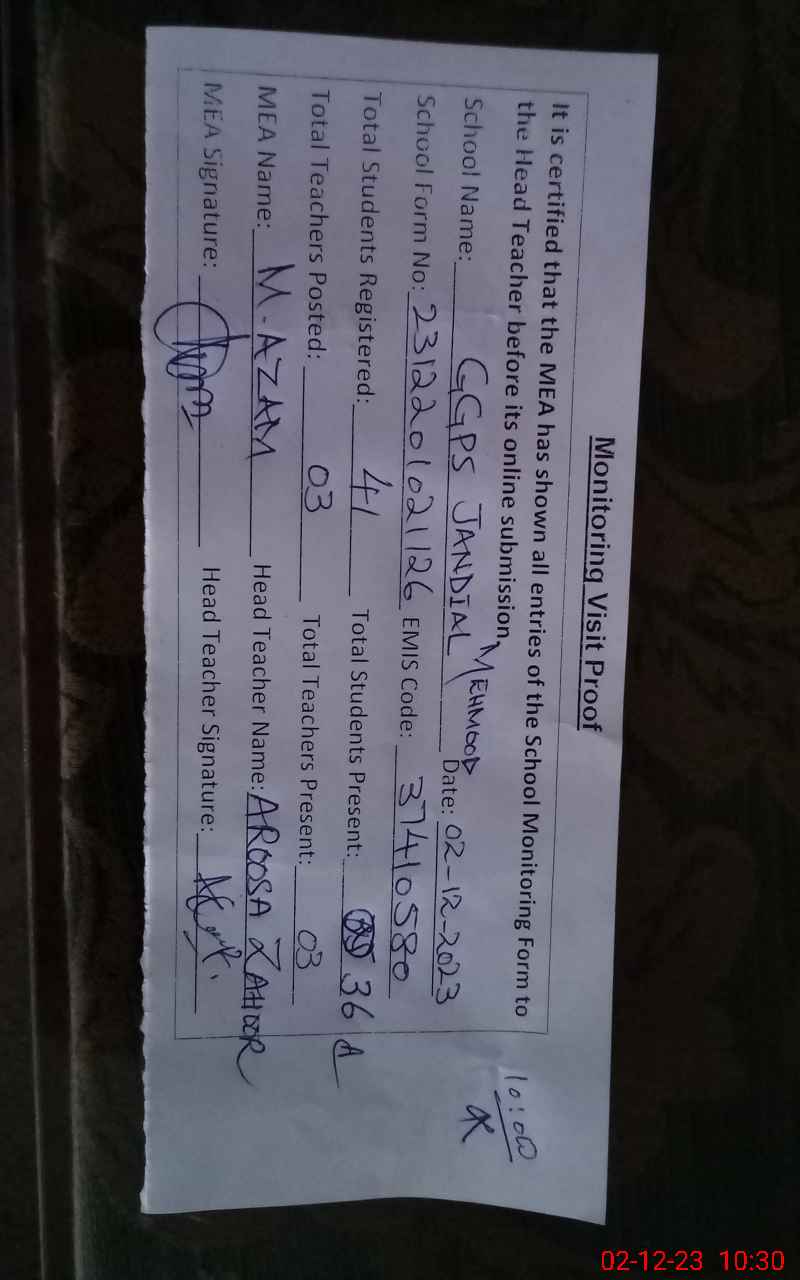 Monitoring Visit Proof
It is certified that the MEA has shown all entries of the School Monitoring Form to
the Head Teacher before its online submission.
10:00
School Name: GGPS JANDIAL MEHMOOD Date: 02-12-2023
School Form No: 2312201021126 EMIS Code: 37410580
Total Students Registered: 41 Total Students Present: 36
Total Teachers Posted: 03 Total Teachers Present: 03
MEA Name: M-AZAM Head Teacher Name: AROOSA ZAHOOR
MEA Signature: Head Teacher Signature:
02-12-23 10:30